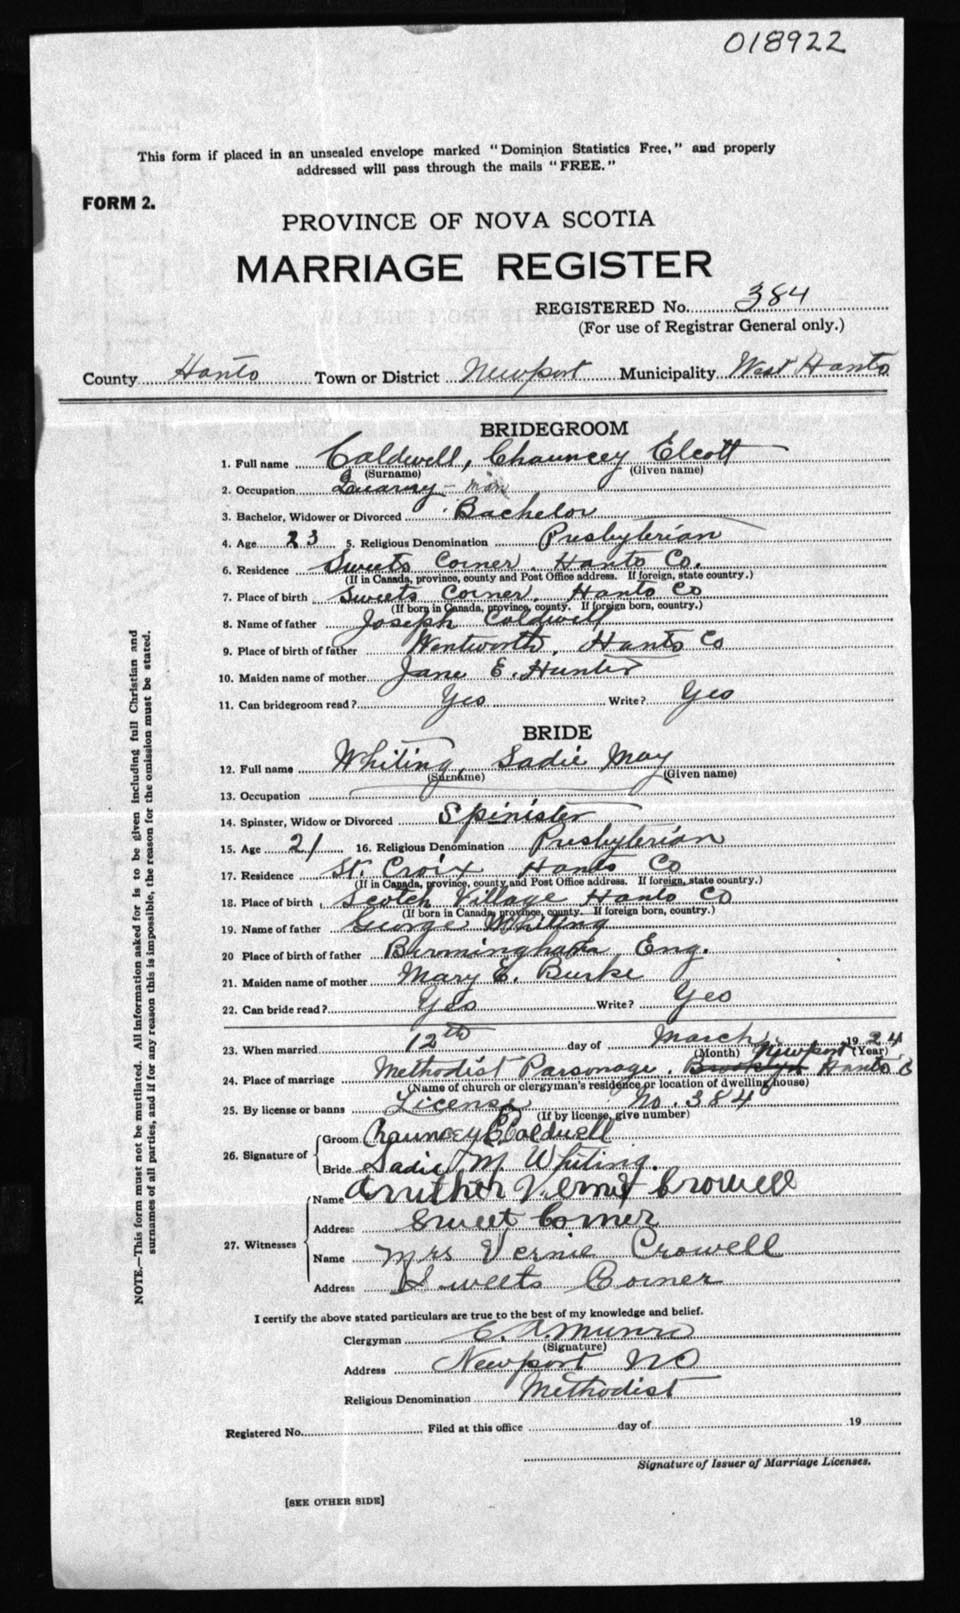 018922
This form if placed in an unsealed envelope marked "Dominion Statistics Free," and properly
addressed will pass through the mails "FREE."
FORM 2.
PROVINCE OF NOVA SCOTIA
MARRIAGE REGISTER
REGISTERED No. 384
(For use of Registrar General only.)
County Hants Town or District Newport Municipality West Hants
BRIDEGROOM
1. Full name Caldwell, Chauncey Elcott
(Surname) (Given name)
2. Occupation Quarry-man
3. Bachelor, Widower or Divorced Bachelor
4. Age 23 5. Religious Denomination Presbyterian
6. Residence Sweets Corner. Hants Co.
(If in Canada, province, county and Post Office address. If foreign, state country.)
7. Place of birth Sweets Corner. Hants Co
(If born in Canada, province, county. If foreign born, country.)
8. Name of father Joseph Caldwell
9. Place of birth of father Wentworth, Hants Co
10. Maiden name of mother Jane E. Hunter
11. Can bridegroom read? Yes Write? Yes
BRIDE
12. Full name Whiting, Sadie May
(Surname) (Given name)
13. Occupation
14. Spinster, Widow or Divorced Spinister
15. Age 21 16. Religious Denomination Presbyterian
17. Residence St. Croix Hants Co
(If in Canada, province, county and Post Office address. If foreign, state country.)
18. Place of birth Scotch Village Hants Co
(If born in Canada, province, county. If foreign born, country.)
19. Name of father George Whiting
20 Place of birth of father Birmingham Eng.
21. Maiden name of mother Mary E. Burke
22. Can bride read? Yes Write? Yes
23. When married 12th day of March 1924
(Month) (Year)
Newport
24. Place of marriage Methodist Parsonage, Brooklyn Hants Co
(Name of church or clergyman's residence or location of dwelling house)
25. By license or banns License No. 384
(If by license, give number)
26. Signature of
Groom Chauncey E Caldwell
Bride Sadie M. Whiting.
27. Witnesses
Name Vernie Crowell
Address Sweet Corner
Name Mrs Vernie Crowell
Address Sweets Corner
I certify the above stated particulars are true to the best of my knowledge and belief.
Clergyman Munro
(Signature)
Address Newport
Religious Denomination Methodist
Registered No. Filed at this office day of 19
Signature of Issuer of Marriage Licenses.
[SEE OTHER SIDE]
NOTE.—This form must not be mutilated. All information asked for is to be given including full Christian and
surnames of all parties, and if for any reason this is impossible, the reason for the omission must be stated.